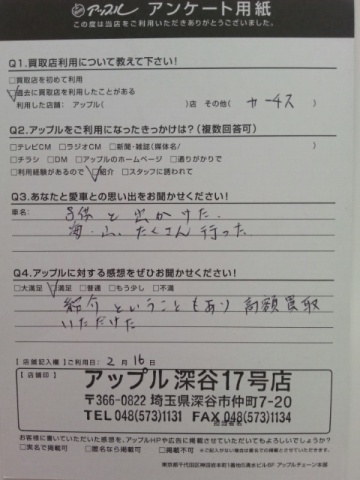 アップル アンケート用紙
この度は当店をご利用いただきありがとうございました。
Q1.買取店利用について教えて下さい!
□買取店を初めて利用
□過去に買取店を利用したことがある
利用した店舗: アップル( )店 その他( カーチス )
Q2.アップルをご利用になったきっかけは?(複数回答可)
□テレビCM □ラジオCM □新聞・雑誌(媒体名/ )
□チラシ □DM □アップルのホームページ □通りがかりで
□利用経験があるので □紹介 □スタッフに誘われて
Q3.あなたと愛車との思い出をお聞かせください!
車名:
子供と出かけた。
海、山、たくさん行った
Q4.アップルに対する感想をぜひお聞かせください!
□大満足 □満足 □普通 □もう少し □不満
紹介ということもあり 高額買取
いただけた
【店舗記入欄】ご利用日: 2月16日
【店舗印】
アップル 深谷17号店
〒366-0822 埼玉県深谷市仲町7-20
TEL 048(573)1131 FAX 048(573)1134
担当者名
※ご記入がない場合は匿名での掲載とさせていただきます。
お客様に書いていただいた感想を、アップルHPや広告に掲載させていただいてもよろしいでしょうか?
□実名で掲載可 □匿名なら掲載可 □掲載不可
東京都千代田区神田岩本町1番地5清水ビル5F アップルチェーン本部